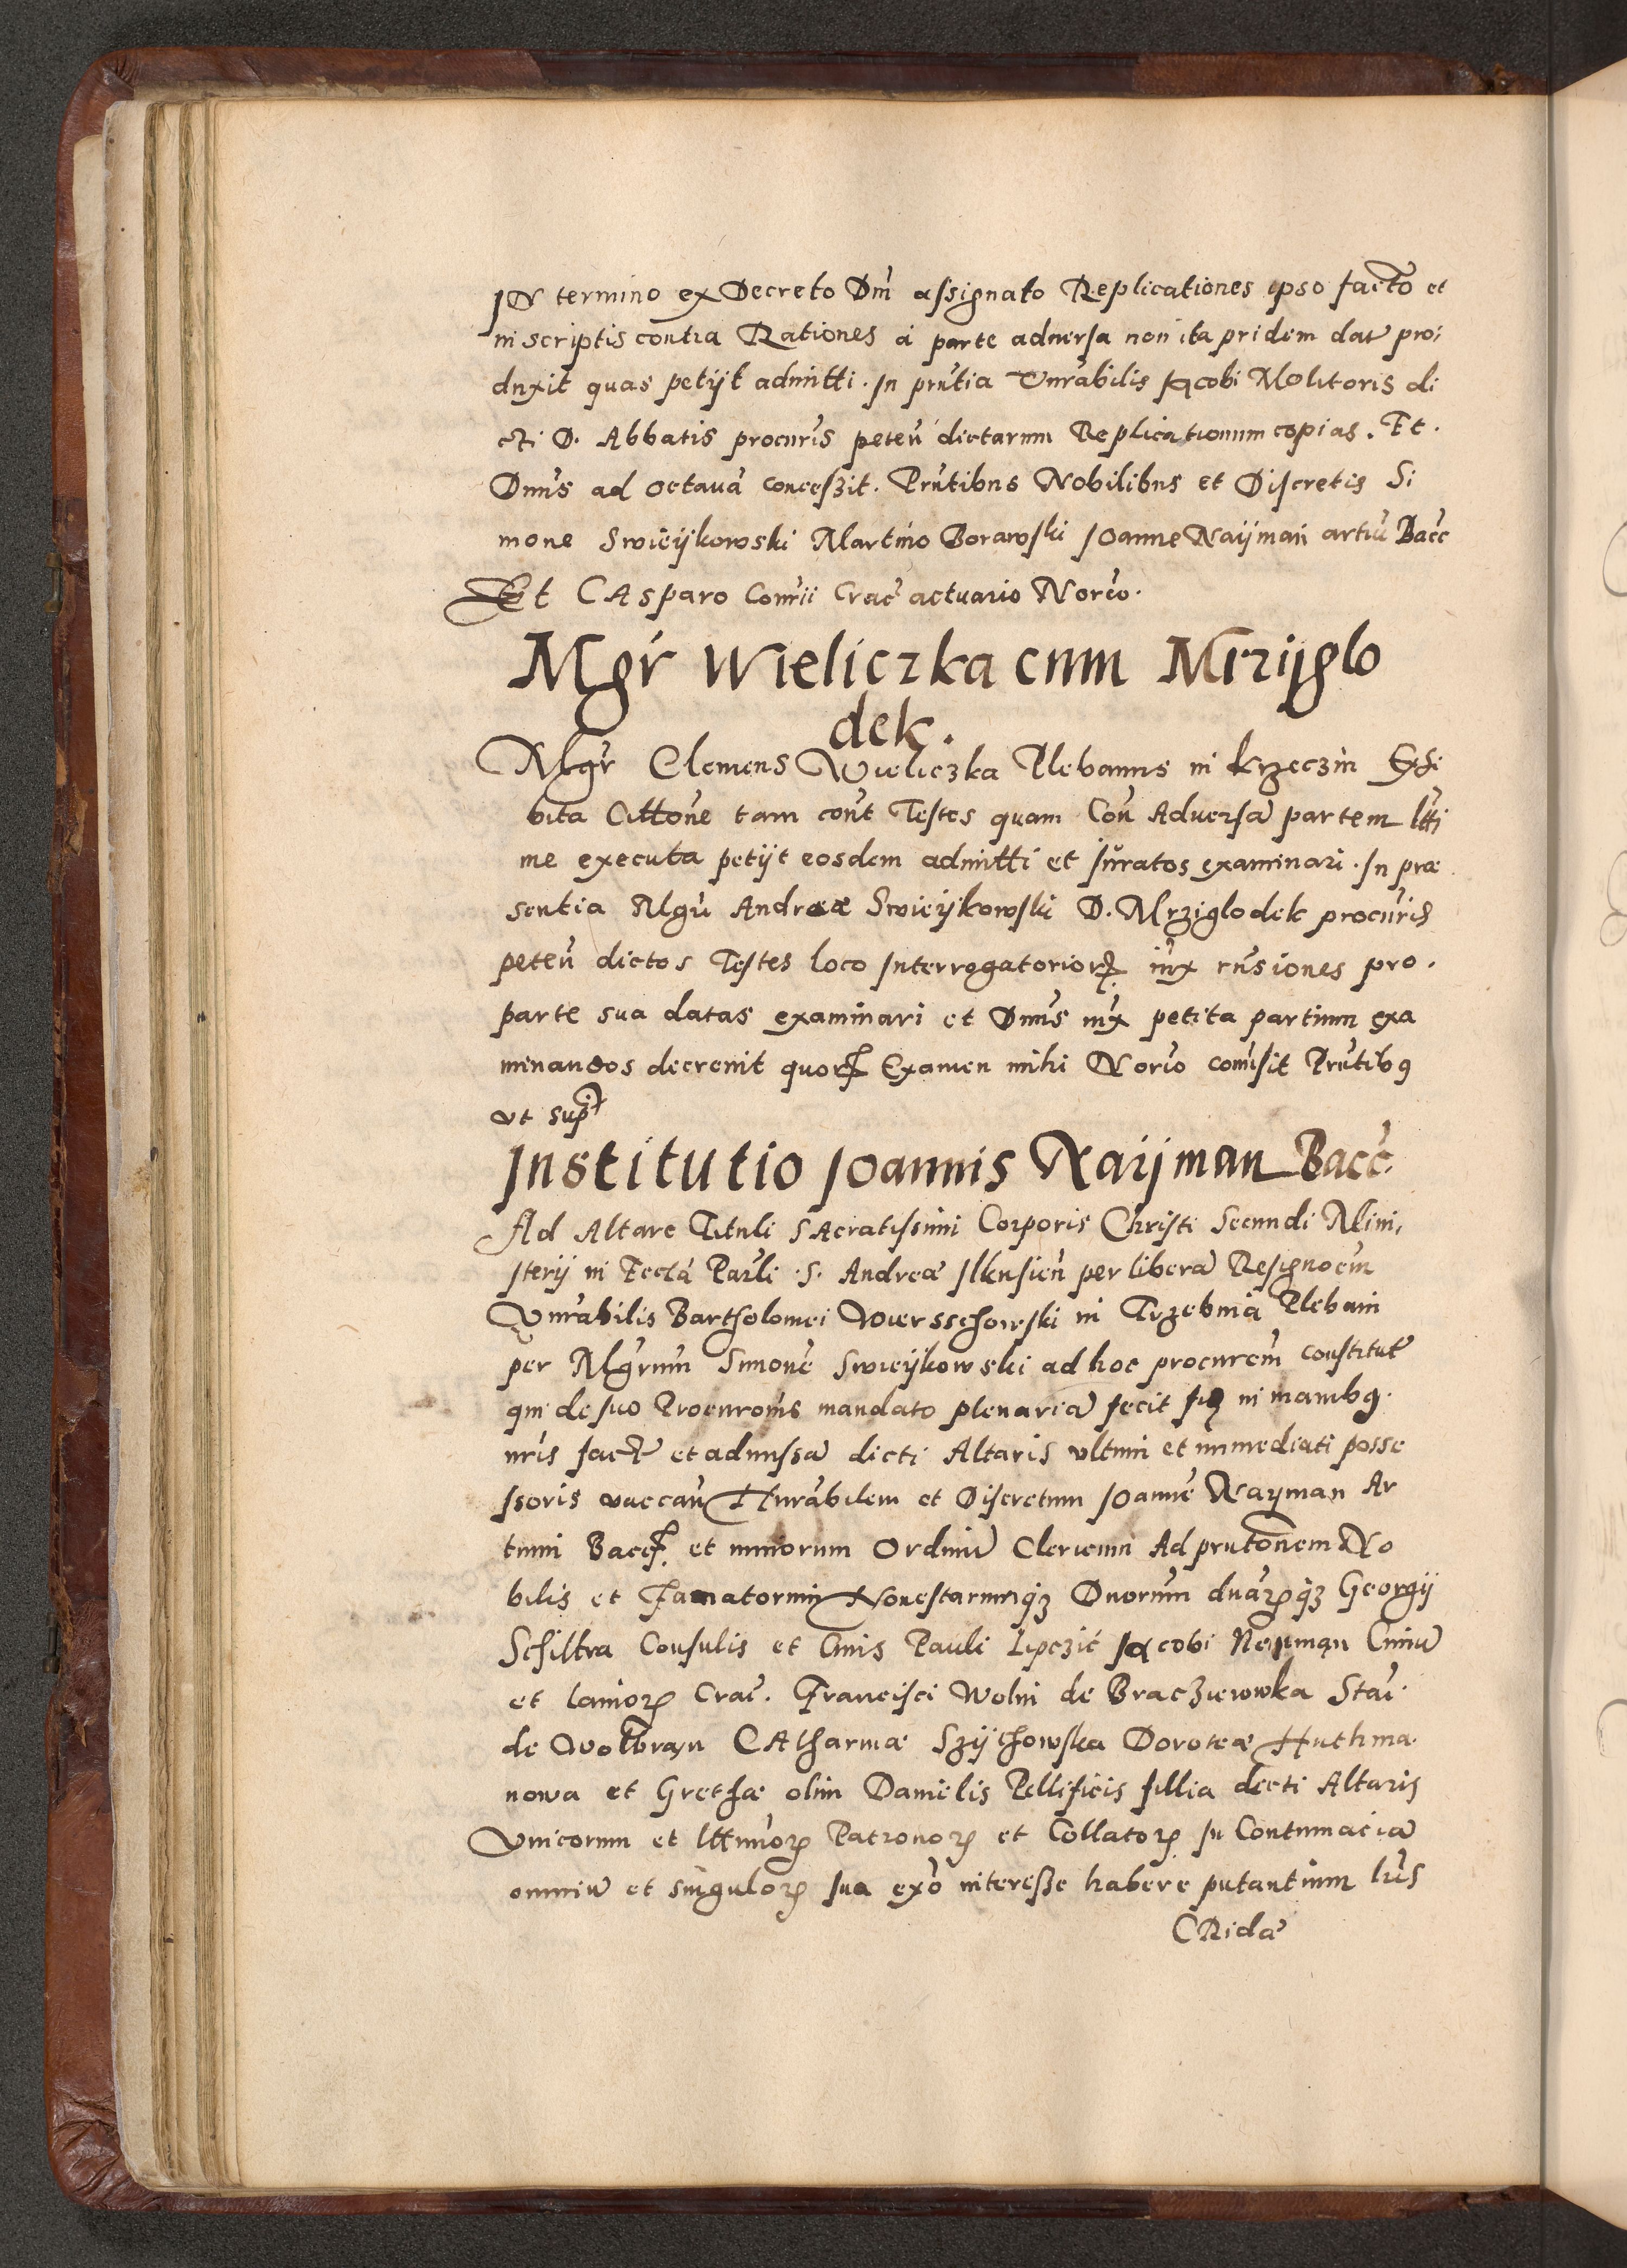 IN termino ex Decreto Dni assignato Replicationes ipso facto et
in scriptis contra Rationes a parte aduersa non ita pridem dat pro:
duxit quas petijt admitti. In pntia Vnrabilis Iacobi Molitoris di
cti D. Abbatis procuris peten dictarum Replicationum copias. Et.
Dnus ad octauã concessit. Pntibus Nobilibus et Discretis Si
mone Swieijkowski Martino Borawski Ioanne Naijman artiũ Bacc
Et CAsparo Consrii Crac actuario Norio.
Mgr Wieliczka cum Mrzijglo
dek.
Mgr Clemens Wieliczka Plebanus in Krzeczin Exhi
bita Cittone tam cont Testes quam Con Aduersã partem ltti
me executa petijt eosdem admitti et iuratos examinari. In præ
sentia Mgri Andreæ Swieijkowski D. Mrziglodek procuris
peten dictos Testes loco Interrogatoriorꝝ iux rnsiones pro.
parte sua datas examinari et Dnus iux petita partium exa
minandos decreuit quorꝝ Examen mihi Norio comisit Pntibꝯ
vt supra
Institutio Ioannis Naijman Bacc.
Ad Altare Tituli SAcratissimi Corporis Christi Secundi Mini,
sterij in Eccla Parli .S. Andreæ Ilkusien per liberã Resignoem
Vnrabilis Bartholomei Wiersschowski in Trzebnia Plebani
per Mgrum Simonẽ Swieijkowski ad hoc procurem constitut
qui de suo Procuronis mandato plenariã fecit in manibꝯ.
nris fact et admissã dicti Altaris vltimi et immediati posse
ssoris vaccan Hnrabilem et Discretum Ioannẽ Nayman Ar
tium Baccꝝ et minorum Ordinũ Clericum Ad pntonem No
bilis et Famatorum Honestarumqꝫ Dnorum duarꝝqꝫ Georgij
Schiltra Consulis et Ciuis Pauli Lipczic Iacobi Neyman Ciuiũ
et lanioꝝ Crac. Francisci Wolni de Braczieiowka Staĩ.
de Wolbram CAtharinæ Szijchowska Doroteæ Huthma.
nowa et Grethæ olim Danielis Pellificis fillia dicti Altaris
Vnicorum et lttimoꝝ Patronoꝝ et Collatoꝝ In Contumaciã
omniũ et singuloꝝ sua exo interesse habere putantium lris
CRidæ